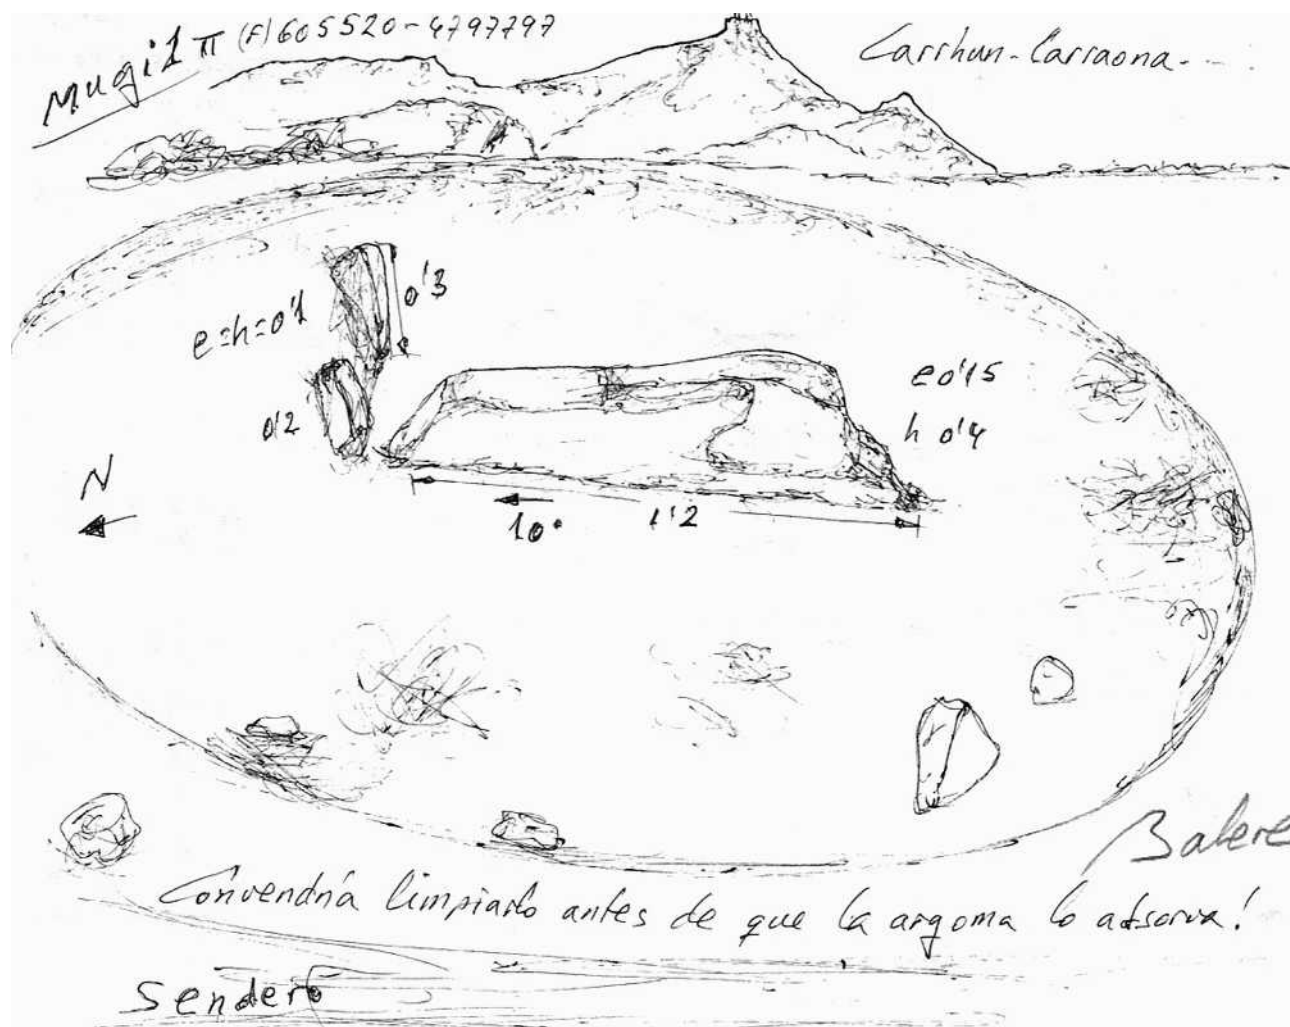 Mugil π (F) 605520-4797797
Larrhun-Larraona---
0'3
e=h=0'1
0'2
e 0'15
h 0'4
N
10°
1'2
Balere
Convendría limpiarlo antes de que la argoma lo adsorva!
Sendero